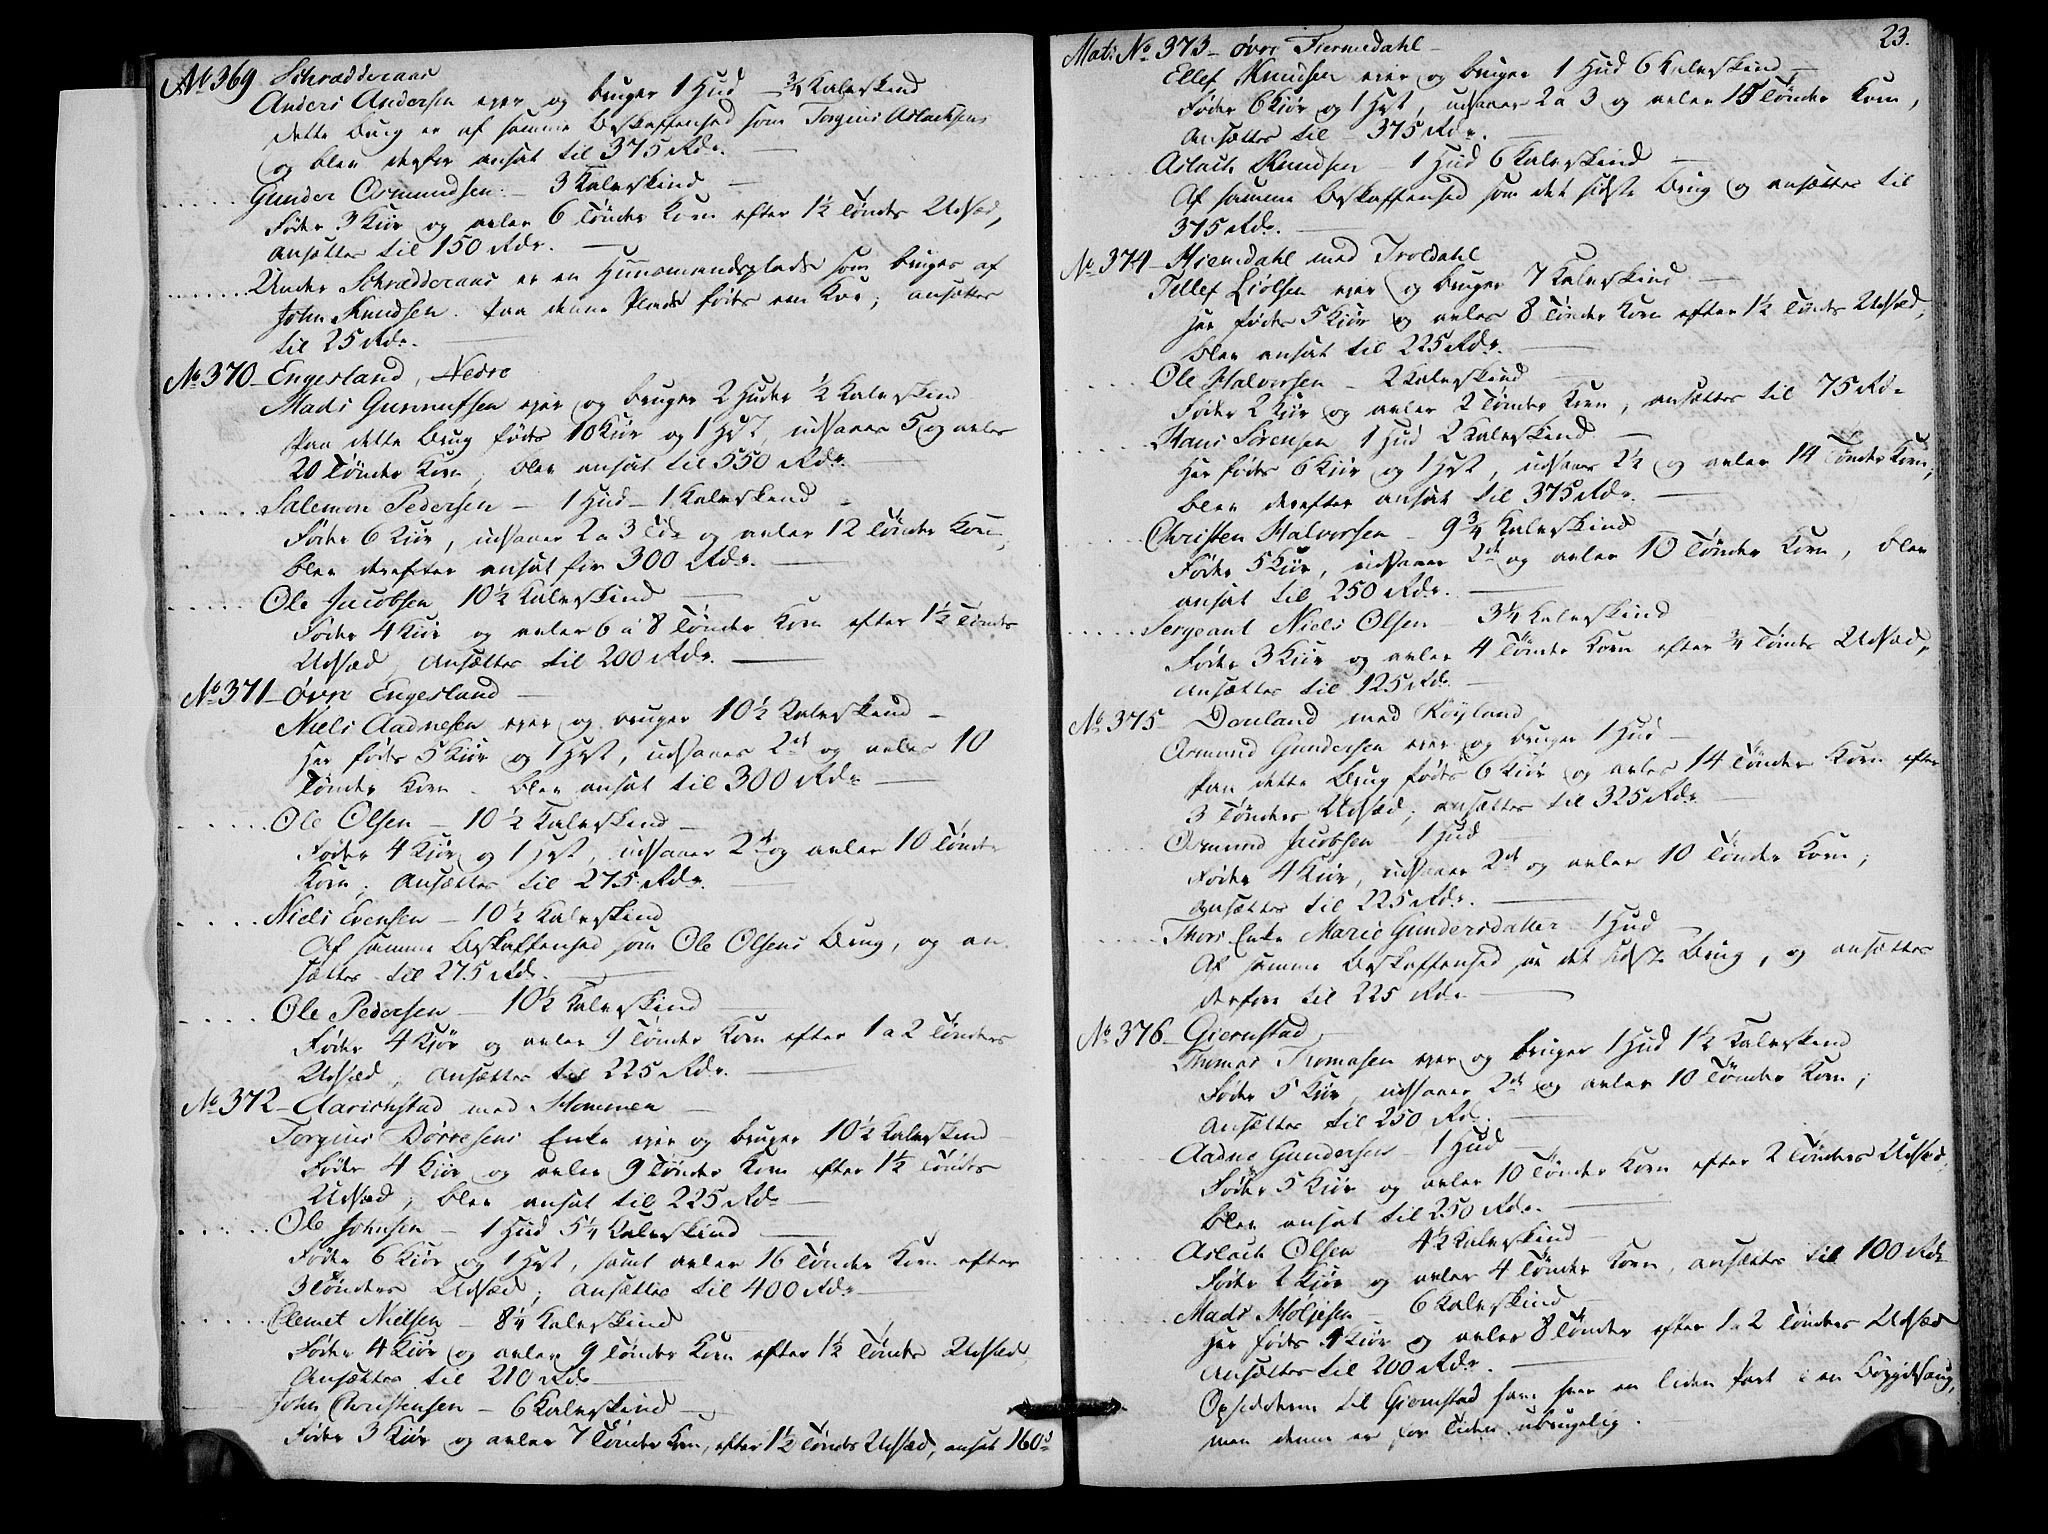 No 369 Schrædderaas
Anders Andersen ejer og bruger 1 Hud - 3/4 Kalvskind
dette Brug er af samme Beskaffenhed som Torgius Aslachsens
og blev derfor ansat til 375 Rdr.
Gunder Osmundsen - 3 Kalvskind
Føder 3 Kiör og avler 6 Tönder Korn efter 1½ Töndes Udsæd,
ansættes til 150 Rdr.
Under Schrædderaas er en Huusmandsplads som bruges af
John Knudsen. Paa denne Plads födes een Koe; ansættes
til 25 Rdr.
No 370 - Engesland, Nedre
Mads Gunnufsen ejer og bruger 2 Huder ½ Kalvskind
Paa dette Brug födes 10 Kiör og 1 Hest, udsaaes 5 og avles
20 Tönder Korn, blev ansat til 550 Rdr.
Salemon Pedersen - 1 Hud - 1 Kalvskind
Föder 6 Kiör, udsaaer 2 a 3 Tdr og avler 12 Tönder Korn,
blev derefter ansat for 300 Rdr.
Ole Jacobsen 10½ Kalvskind
Föder 4 Kiör og avler 6 a 8 Tönder Korn efter 1½ Töndes
Udsæd, ansættes til 200 Rdr.
No 371 - Øvre Engesland
Niels Aadnesen ejer og bruger 10½ Kalvskind
Her födes 5 Kiör og 1 Hest, udsaaes 2de og avles 10
Tönder Korn. blev ansat til 300 Rdr
Ole Olsen - 10½ Kalvskind
Föder 4 Kiör og 1 Hest, udsaaer 2de og avler 10 Tönder
Korn; ansættes til 275 Rdr.
Niels Evensen - 10½ Kalvskind
Af samme Beskaffenhed som Ole Olsens Brug, og an-
sættes til 275 Rdr.
Ole Pedersen - 10½ Kalvskind
Föder 4 Kjör og avler 9 Tönder Korn efter 1 a 2 Tönders
Udsæd, ansættes til 225 Rdr.
No 372 - Aarichstad med Hommen
Torgius Børresens Enke ejer og bruger 10½ Kalvskind
Föder 4 Kiör og avler 9 Tönder Korn efter 1½ Töndes
Udsæd, blev ansat til 225 Rdr
Ole Johnsen - 1 Hud 5¼ Kalvskind
Föder 6 Kiör og 1 Hest, samt avler 16 Tönder Korn efter
3 Tönders Udsæd; ansættes til 400 Rdr
Clemet Nielsen - 8¼ Kalvskind
Föder 4 Kiör og avler 9 Tönder Korn efter 1½ Töndes Udsæd
Ansættes til 210 Rdr
John Christensen - 6 Kalvskind
Föder 3 Kiör og avler 7 Tönder Korn, efter 1½ Töndes Udsæd, ansat 160
23.
Mat: No 373 - Øvre Fiermedahl
Ellef Knudsen ejer og bruger 1 Hud 6 Kalvskind
Föder 6 Kiör og 1 Hest, udsaaer 2 a 3 og avler 15 Tönder Korn,
ansættes til 375 Rdr.
Aslach Knudsen - 1 Hud 6 Kalvskind
Af samme Beskaffenhed som det sidste Brug og ansættes til
375 Rdr.
No 374 - med Troldahl
Tellef Liölsen ejer og bruger 7 Kalvskind
Her födes 5 Kiör og avles 8 Tönder Korn efter 1½ Töndes Udsæd,
blev ansat til 225 Rdr.
Ole Halvorsen - 2 Kalvskind
Föder 2 Kiör og avler 2 Tönder Korn, ansættes til 75 Rdr
Hans Sørensen 1 Hud 2 Kalvskind
Her födes 6 Kiör og 1 Hest, udsaaes 2½ og avles 14 Tönder Korn,
blev derefter ansat til 375 Rdr.
Christen Halvorsen - 9¾ Kalvskind
Föder 5 Kiör, udsaaer 2de og avler 10 Tönder Korn, blev
ansat til 250 Rdr.
Sergeant Niels Olsen - 3¼ Kalvskind
Föder 3 Kiör og avler 4 Tönder Korn efter ¾ Töndes Udsæd,
ansættes til 125 Rdr
No 375 - Douland med Röyland
Osmund Gundersen ejer og bruger 1 Hud -
Paa dette Brug födes 6 Kiör og avles 14 Tönder Korn efter
3 Tönders Udsæd; ansættes til 325 Rdr
Osmund Jacobsen - 1 Hud
Föder 4 Kiör, udsaaer 2de og avler 10 Tönder Korn;
ansættes til 225 Rdr.
Thors Enke Marie Gundersdatter 1 Hud
Af samme Beskaffenhed som det sidste Brug, og ansættes
derfore til 225 Rdr
No 376 - Giernstad
Thomas Tromasen ejer og bruger 1 Hud 1½ Kalvskind
Föder 5 Kiör, udsaaer 2de og avler 10 Tönder Korn;
ansættes til 250 Rdr.
Aadne Gundersen - 1 Hud
Föder 5 Kiör og avler 10 Tönder Korn efter 2 Tönders Udsæd,
blev ansat til 250 Rdr.
Aslach Olsen 4½ Kalvskind
Föder 2 Kiör og avler 4 Tönder Korn, ansættes til 100 Rdr
Mads Höljesen - 6 Kalvskind
Her födes 4 Kiör og avles 8 Tönder efter 1 a 2 Tönders Udsæd
ansættes til 200 Rdr.
Opsidderne til Giernstad have hver en liden Part i en Bögdesaug,
men denne er for Tiden ubrugelig.